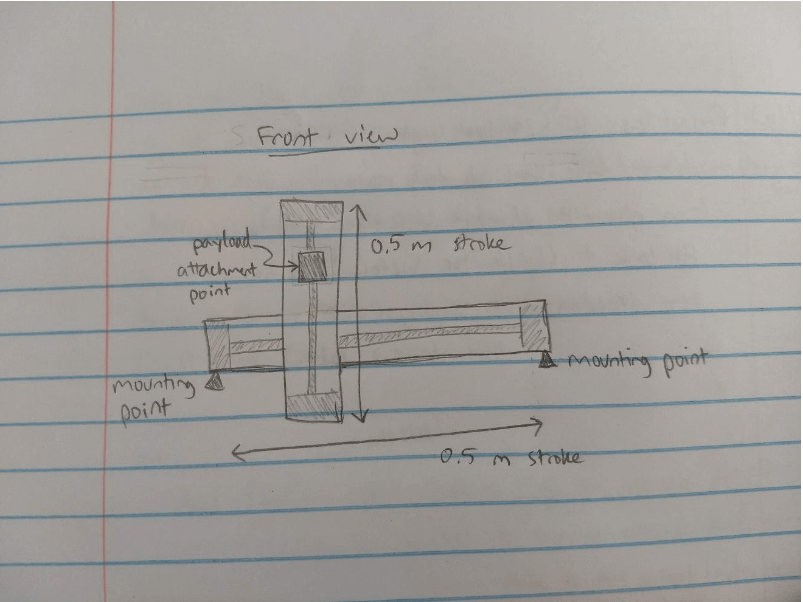 Front view
payload
attachment
point
0.5 m stroke
mounting
point
mounting point
0.5 m stroke